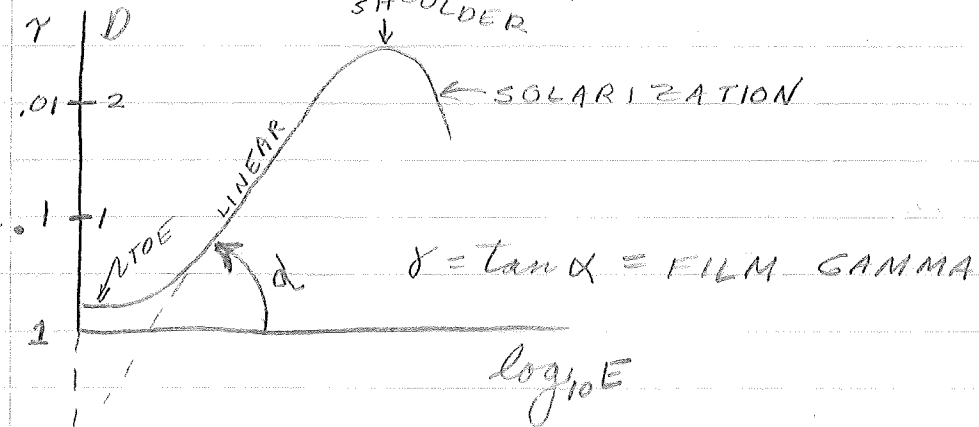 SHOULDER
τ D
.01 2
SOLARIZATION
LINEAR
.1 1
TOE
α
γ = tan α = FILM GAMMA
1
log₁₀E